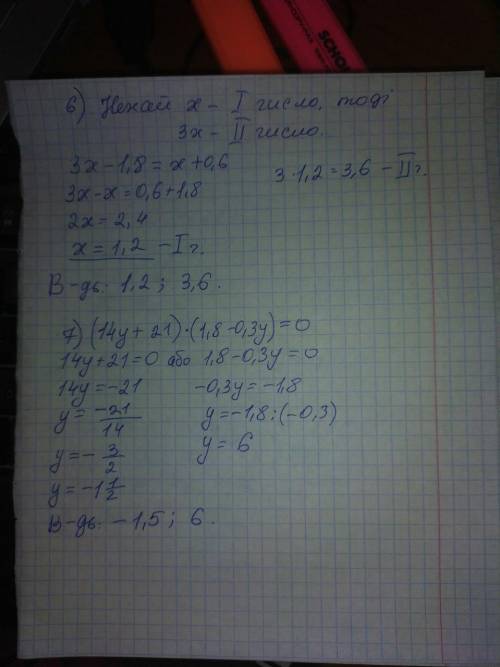 SCHOL
6) Нехай x - I число, тоді
3x - II число.
3x - 1,8 = x + 0,6
3 · 1,2 = 3,6 - II ч.
3x - x = 0,6 + 1,8
2x = 2,4
x = 1,2 - I ч.
В-дь: 1,2 ; 3,6.
7) (14y + 21) · (1,8 - 0,3y) = 0
14y + 21 = 0 або 1,8 - 0,3y = 0
14y = -21
-0,3y = -1,8
y = -21/14
y = -1,8 : (-0,3)
y = - 3/2
y = 6
y = -1 1/2
В-дь: -1,5 ; 6.